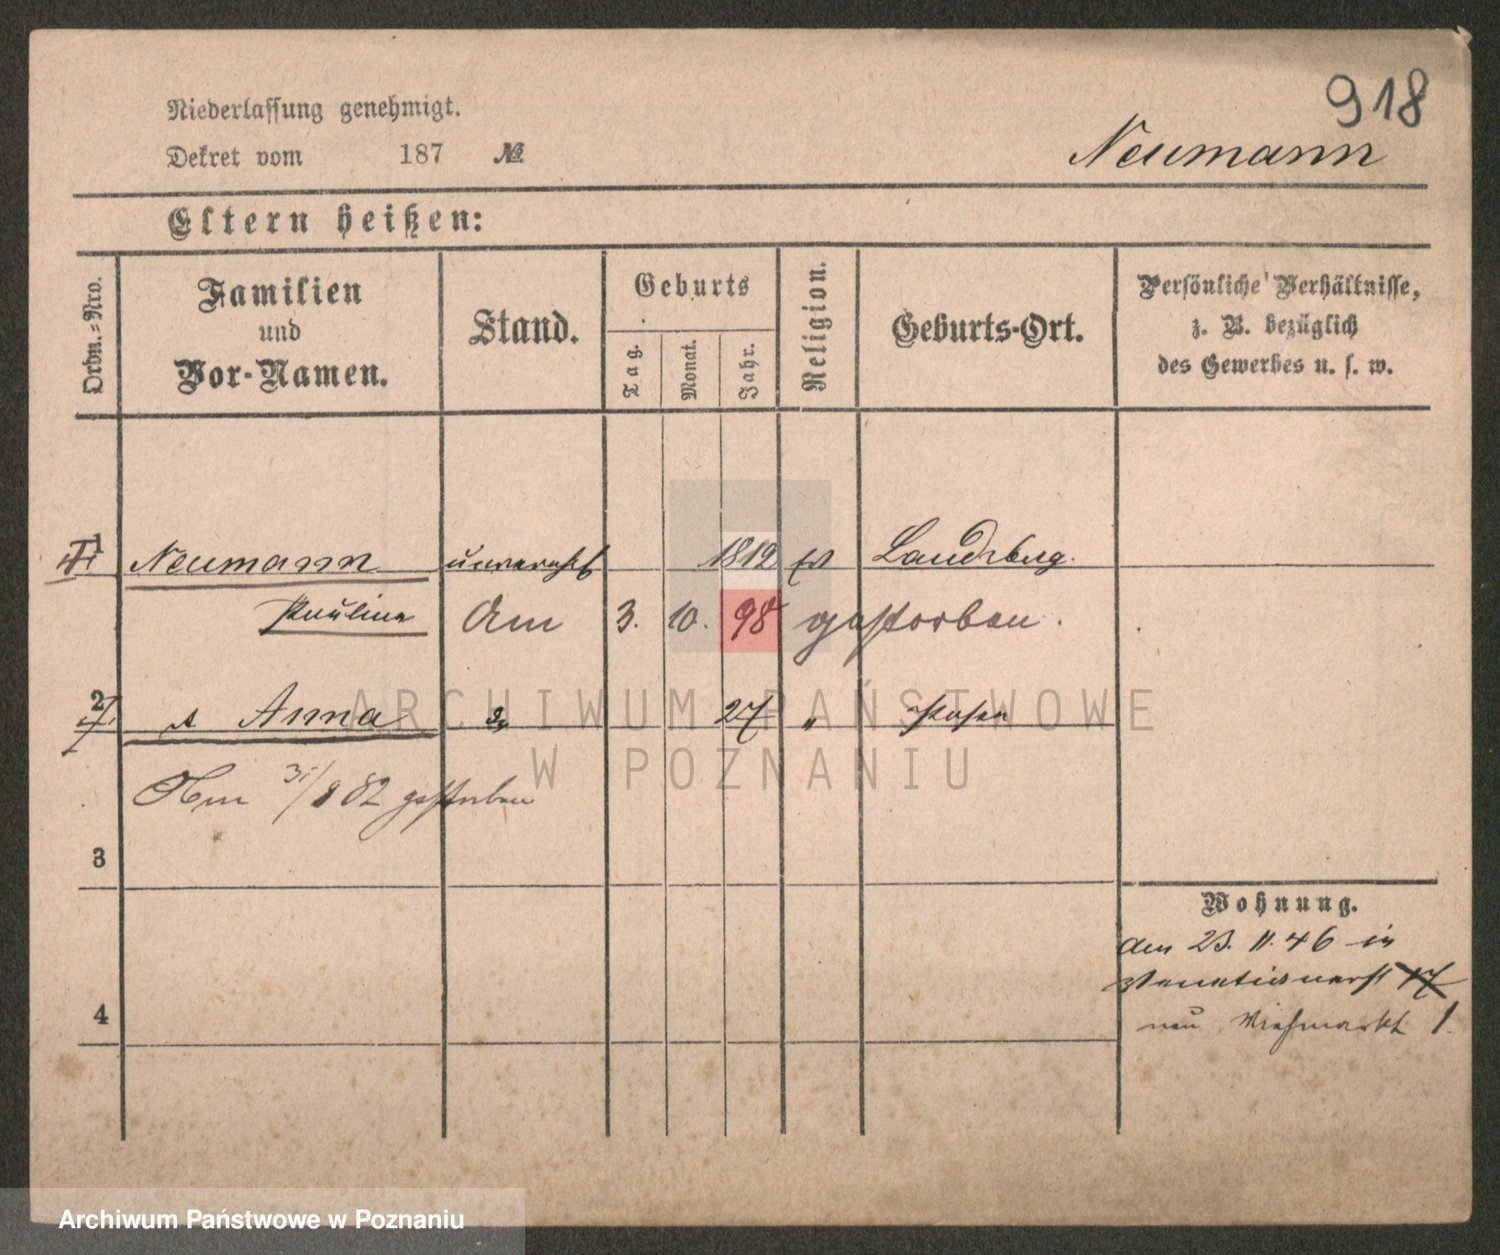 918
Niederlassung genehmigt.
Dekret vom 187 №
Neumann
Eltern heißen:
Ordn.-Nro.
Familien
und
Vor-Namen.
Stand.
Geburts
Tag.
Monat.
Jahr.
Religion.
Geburts-Ort.
Persönliche Verhältnisse,
z. B. bezüglich
des Gewerbes u. s. w.
1 Neumann unverehl 1812 ev Landsberg.
Pauline Am 3. 10. 98 gestorben.
2 Anna 27 " Posen
Am 31/8 82 gestorben
3
4
Wohnung.
den 23. 11. 46 in
Venetianerst 17
neu Viehmarkt 1.
ARCHIWUM PAŃSTWOWE
W POZNANIU
Archiwum Państwowe w Poznaniu